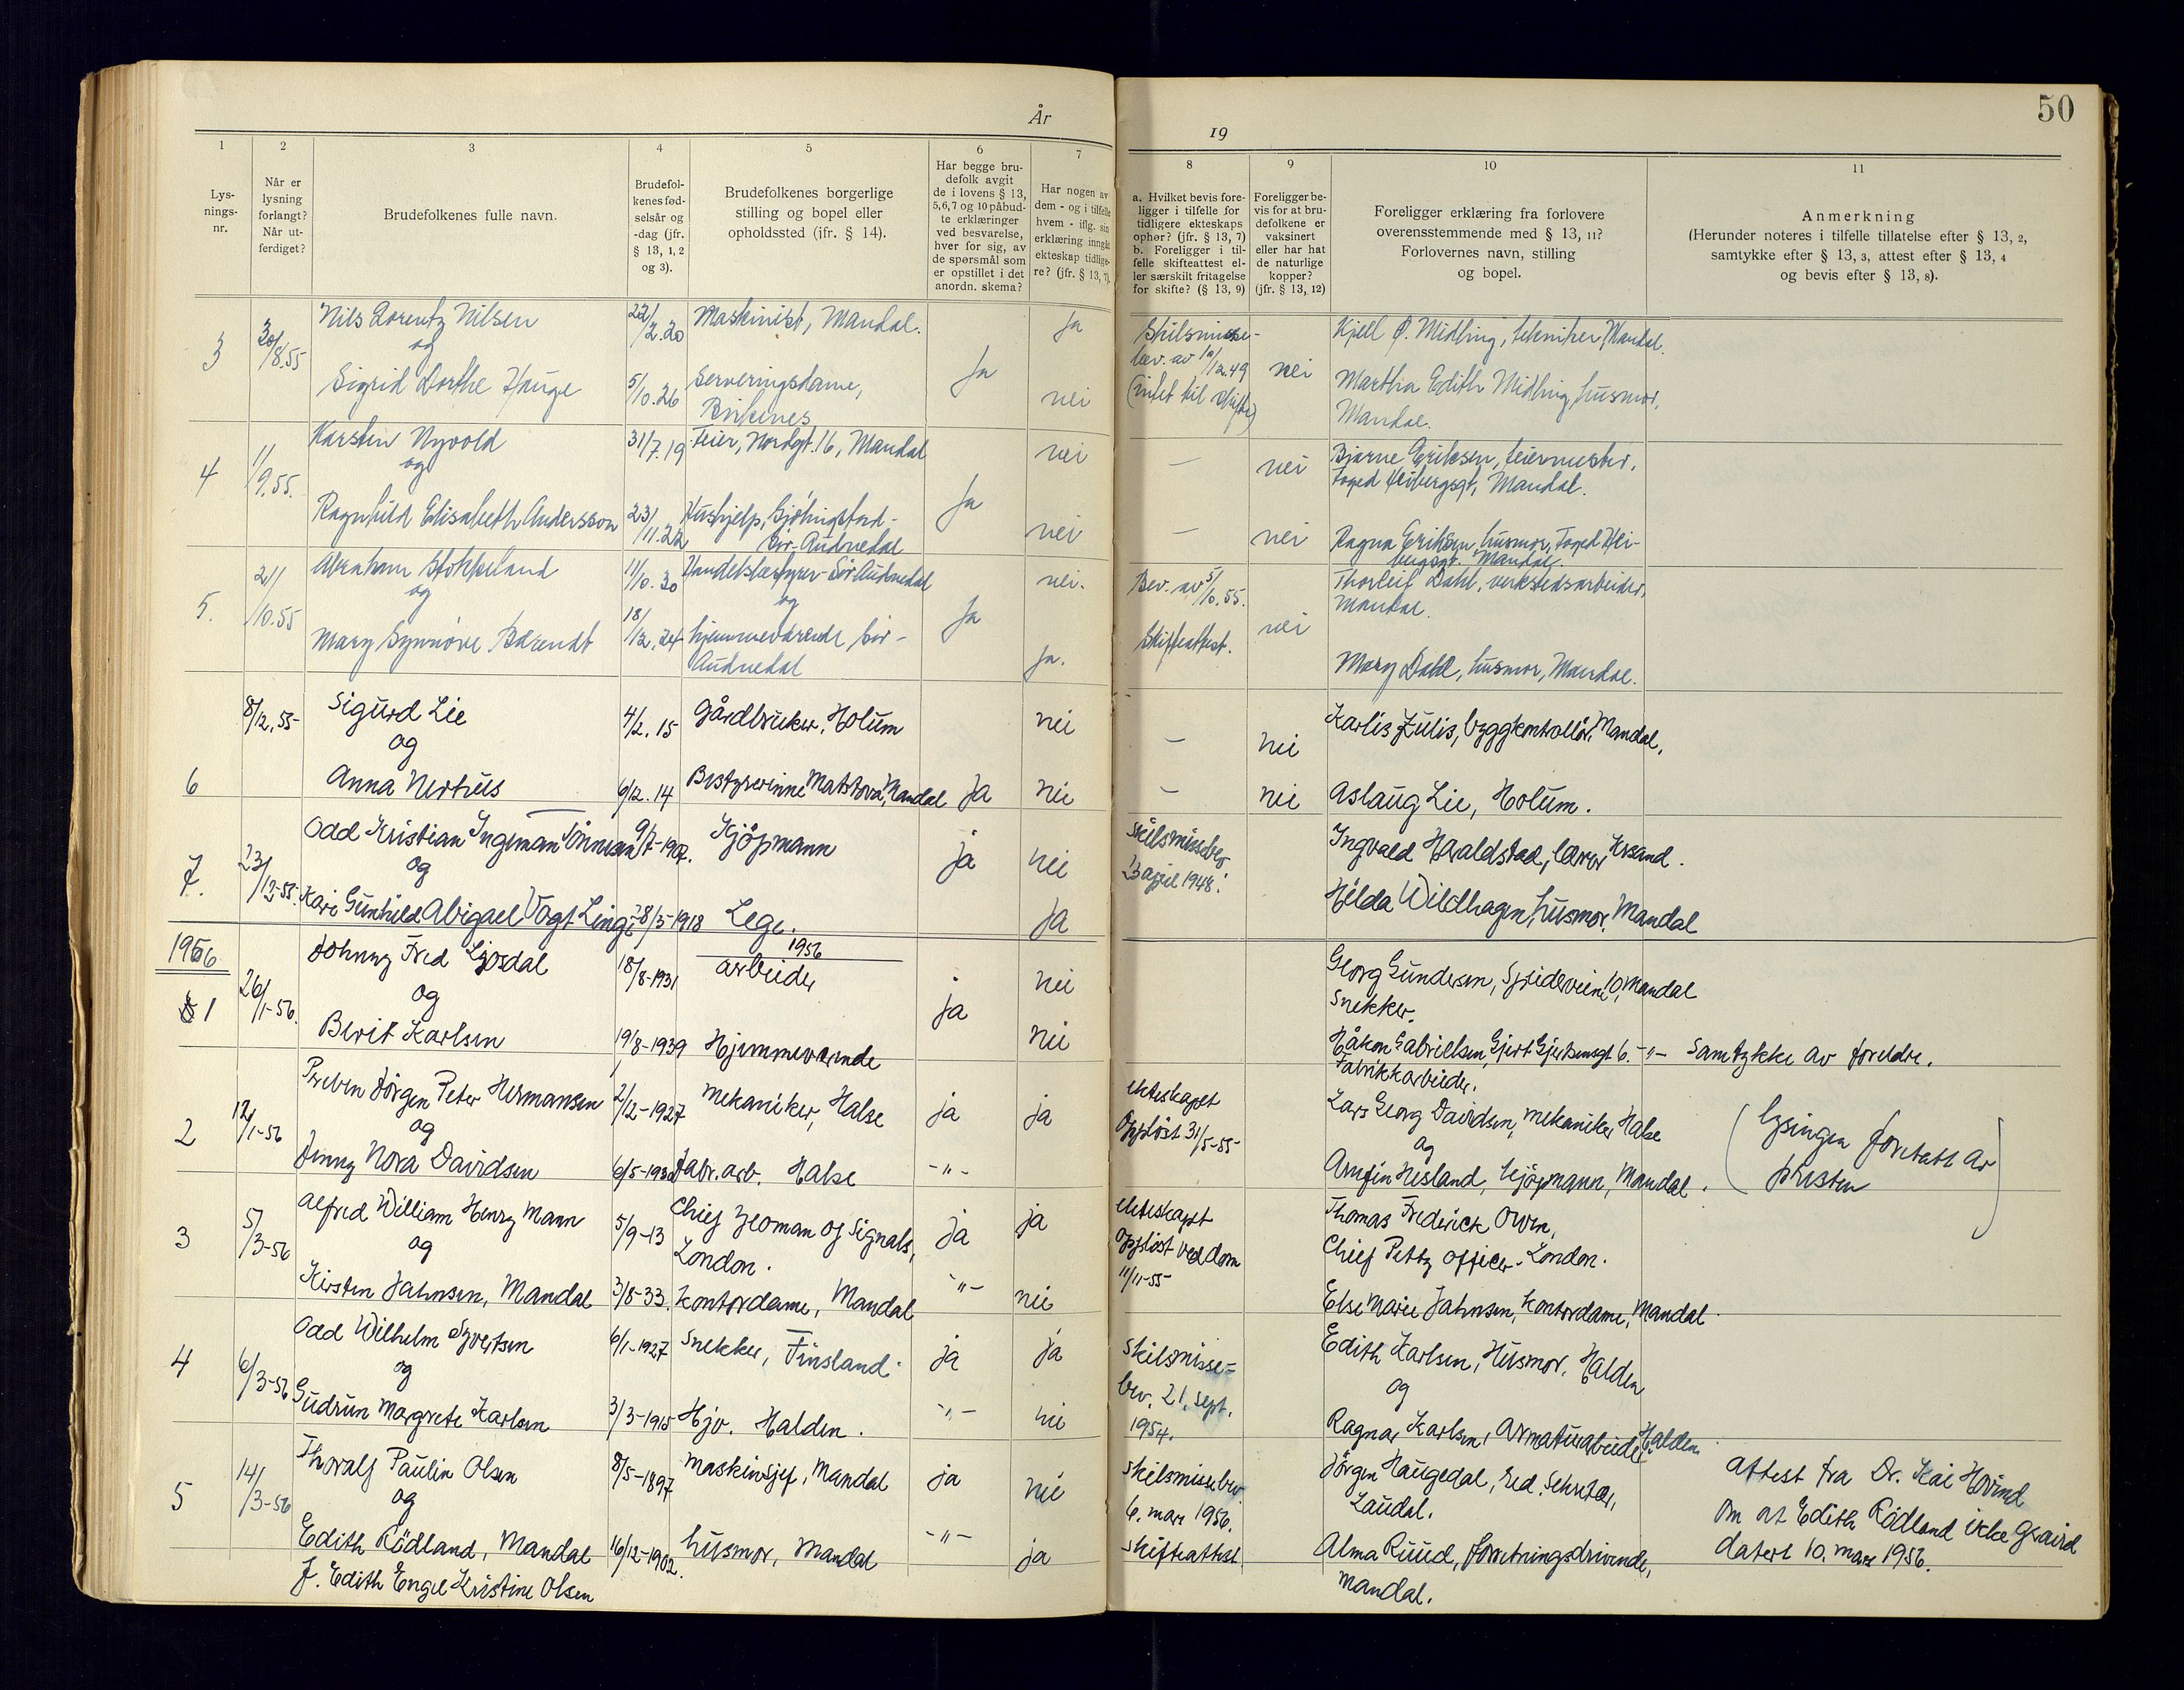 50
År
19
1
Lys-
nings-
nr.
2
Når er
lysning
forlangt?
Når ut-
ferdiget?
3
Brudefolkenes fulle navn.
4
Brudefol-
kenes fød-
selsår og
-dag (jfr.
§ 13, 1, 2
og 3).
5
Brudefolkenes borgerlige
stilling og bopel eller
opholdssted (jfr. § 14).
6
Har begge bru-
defolk avgit
de i lovens § 13,
5, 6, 7 og 10 påbud-
te erklæringer
ved besvarelse,
hver for sig, av
de spørsmål som
er opstillet i det
anordn. skema?
7
Har nogen av
dem - og i tilfelle
hvem - iflg. sin
erklæring inngått
ekteskap tidlige-
re? (jfr. § 13, 7).
8
a. Hvilket bevis fore-
ligger i tilfelle for
tidligere ekteskaps
ophør? (jfr. § 13, 7)
b. Foreligger i til-
felle skifteattest el-
ler særskilt fritagelse
for skifte? (§ 13, 9)
9
Foreligger be-
vis for at bru-
defolkene er
vaksinert
eller har hat
de naturlige
kopper?
(jfr. § 13, 12)
10
Foreligger erklæring fra forlovere
overensstemmende med § 13, 11?
Forlovernes navn, stilling
og bopel.
11
Anmerkning
(Herunder noteres i tilfelle tillatelse efter § 13, 2,
samtykke efter § 13, 3, attest efter § 13, 4
og bevis efter § 13, 8).
3
30/8.55
Nils Lorentz Nilsen
og
Sigrid Dorthe Hauge
22/2.20
5/10.26
Maskinist, Mandal.
Serveringsdame,
Birkenes
Ja
Ja
nei
Skilsmisse-
bev. av 10/12.49
(intet til skifte)
nei
Kjell Ø. Midling, tekniker, Mandal.
Martha Edith Midling, husmor,
Mandal.
4
1/9.55.
Karsten Nyvold
og
Ragnhild Elisabeth Andersson
31/7.19
23/11.22
Feier, Nordgt. 16, Mandal
Hushjelp, Gjöhngstad-
Sör-Audnedal
Ja
nei
nei
—
—
nei
nei
Bjarne Eriksen, feiermester,
Foged Heibergsgt, Mandal.
Ragna Eriksen, husmor, Foged Hei-
bergsgt. Mandal.
5.
21/10.55
Abraham Stokkeland
og
Mary Synnöve Barendt
11/10.30
18/12.24
Handelsbestyrer Sör Audnedal
og
hjemmeværende Sör-
Audnedal
Ja
nei.
ja.
Bev. av 5/10.55.
Skifteattest.
nei
Thorleif Dahl, verkstedsarbeider,
Mandal.
Mary Dahl, husmor, Mandal.
6
8/12.55
Sigurd Lie
og
Anna Nertus
4/2.15
6/12.14
Gårdbruker, Holum
Bestyrerinne Matstova, Mandal
Ja
nei
nei
—
—
nei
nei
Karlis Zulis, byggkontrollör, Mandal.
Aslaug Lie, Holum.
7.
23/12-55.
Odd Kristian Ingeman Tönnesen
og
Kari Gunhild Abigael Vogt Linge
9/7-1902.
28/5-1918
Kjöpmann
Lege.
ja
nei
ja
skilsmissebev.
23 april 1948.
Ingvald Haraldstad, lærer Krsand.
Hilda Wildhagen, husmor, Mandal
1956
1956
1
26/1-56.
Johnny Fred Ljosdal
og
Berit Karlsen
18/8-1931
19/8-1939
arbeider
Hjemmeværende
ja
nei
nei
Georg Gundersen, Speiderveien 10, Mandal
Snekker.
Håkon Gabrielsen, Gjert Gjertsensgt 6. -"-
Fabrikkarbeider.
Samtykke av foreldre.
2
12/1-56
Preben Jörgen Peter Hermansen
og
Jenny Nora Davidsen
2/12-1927
6/5-1930
Mekaniker, Halse
Fabr.arb. Halse
ja
-"-
ja
ekteskapet
Opplöst 31/5-55
Lars Georg Davidsen, mekaniker Halse
og
Arnfin Nesland, kjöpmann, Mandal.
(lysingen foretatt av
presten)
3
5/3-56
Alfred William Henry Mann
og
Kirsten Jahnsen, Mandal
5/9-13
3/8-33.
Chief Yeoman of Signals,
London.
Kontordame, Mandal
ja
-"-
ja
nei
ekteskapet
Opplöst ved dom
11/11-55
Thomas Frederick Owen,
Chief Petty officer. London.
Else Marie Jahnsen, Kontordame, Mandal.
4
6/3-56
Odd Wilhelm Syvertsen
og
Gudrun Margrete Karlsen
6/1-1927
3/3-1915
Snekker, Finsland.
Hjv. Halden.
ja
-"-
ja
nei
Skilsmisse=
bev. 21. sept.
1954.
Edith Karlsen, Husmor, Halden
og
Ragnar Karlsen, Armaturarbeider Halden.
5
14/3-56
Thoralf Paulin Olsen
og
Edith Rödland, Mandal
f. Edith Engel Kristine Olsen
8/5-1897
16/12-1902.
Maskinsjef, Mandal
husmor, Mandal
ja
-"-
nei
ja
Skilsmissebev
6. mars 1956.
skifteattest
Jörgen Haugedal, Red. Sekretær,
Laudal.
Alma Ruud, forretningsdrivende,
Mandal.
Attest fra Dr. Kai Hovind
om at Edith Rödland ikke gravid
datert 10. mars 1956.